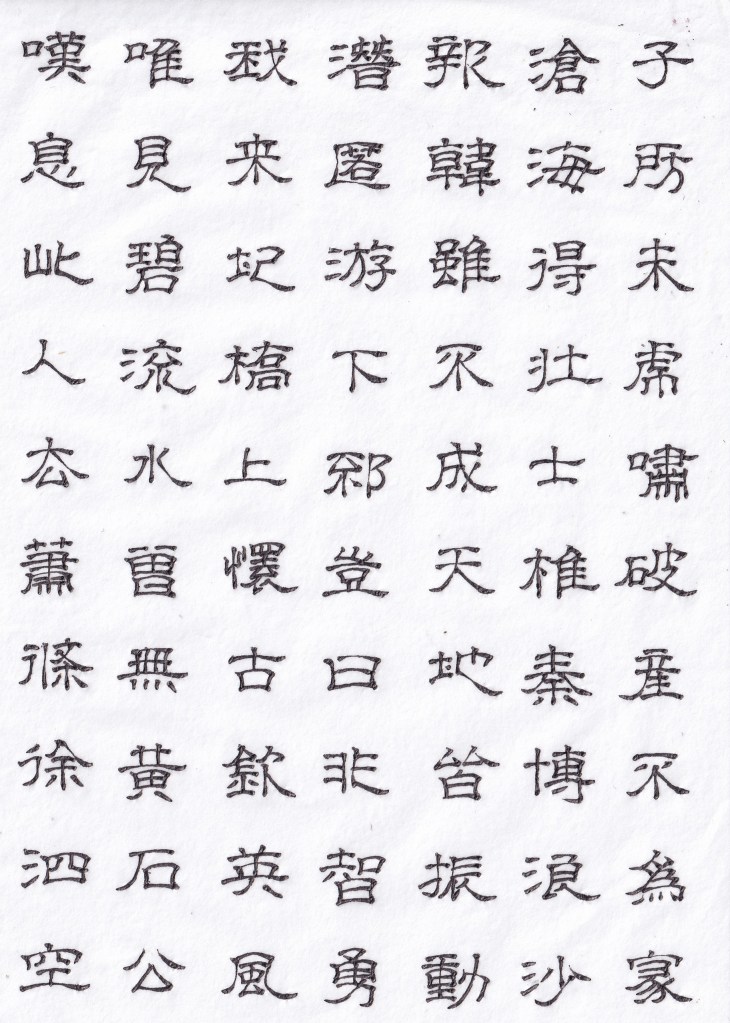 子房未虎嘯破産不爲家
滄海得壯士椎秦博浪沙
報韓雖不成天地皆振動
潛匿游下邳豈曰非智勇
我来圯橋上懷古欽英風
唯見碧流水曾無黄石公
嘆息此人去蕭條徐泗空